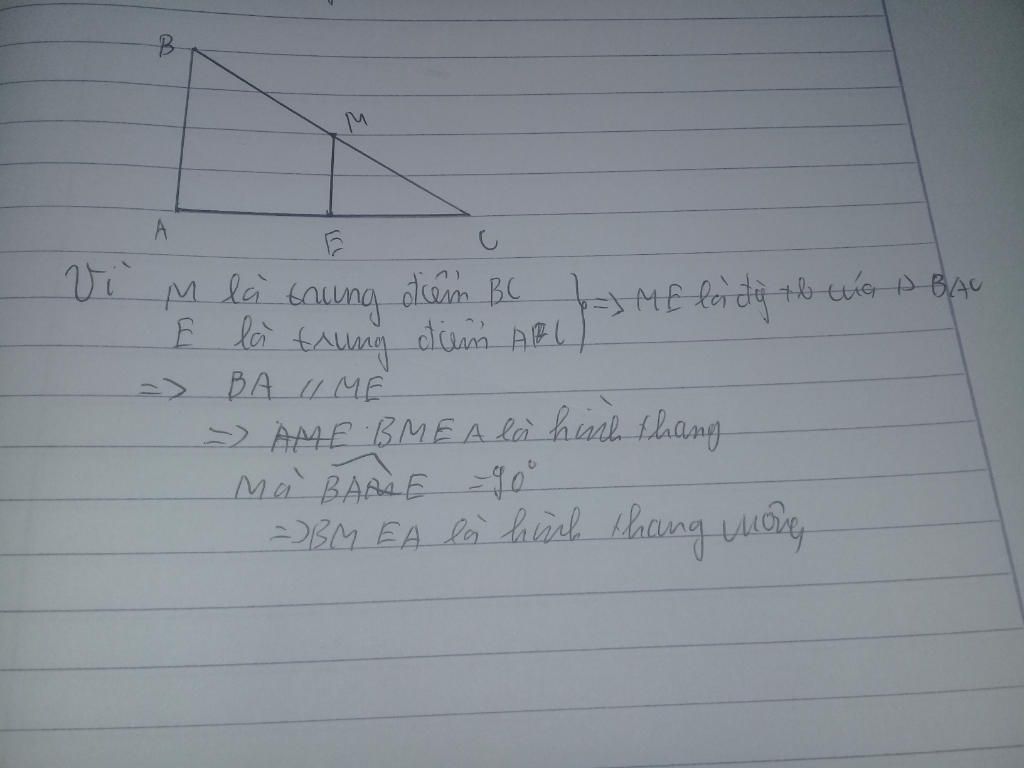 B
M
A
E
C
Vì M là trung điểm BC
E là trung điểm AC
=> ME là đg tb của △ BAC
=> BA // ME
=> BMEA là hình thang
Mà BAE = 90°
=> BMEA là hình thang vuông